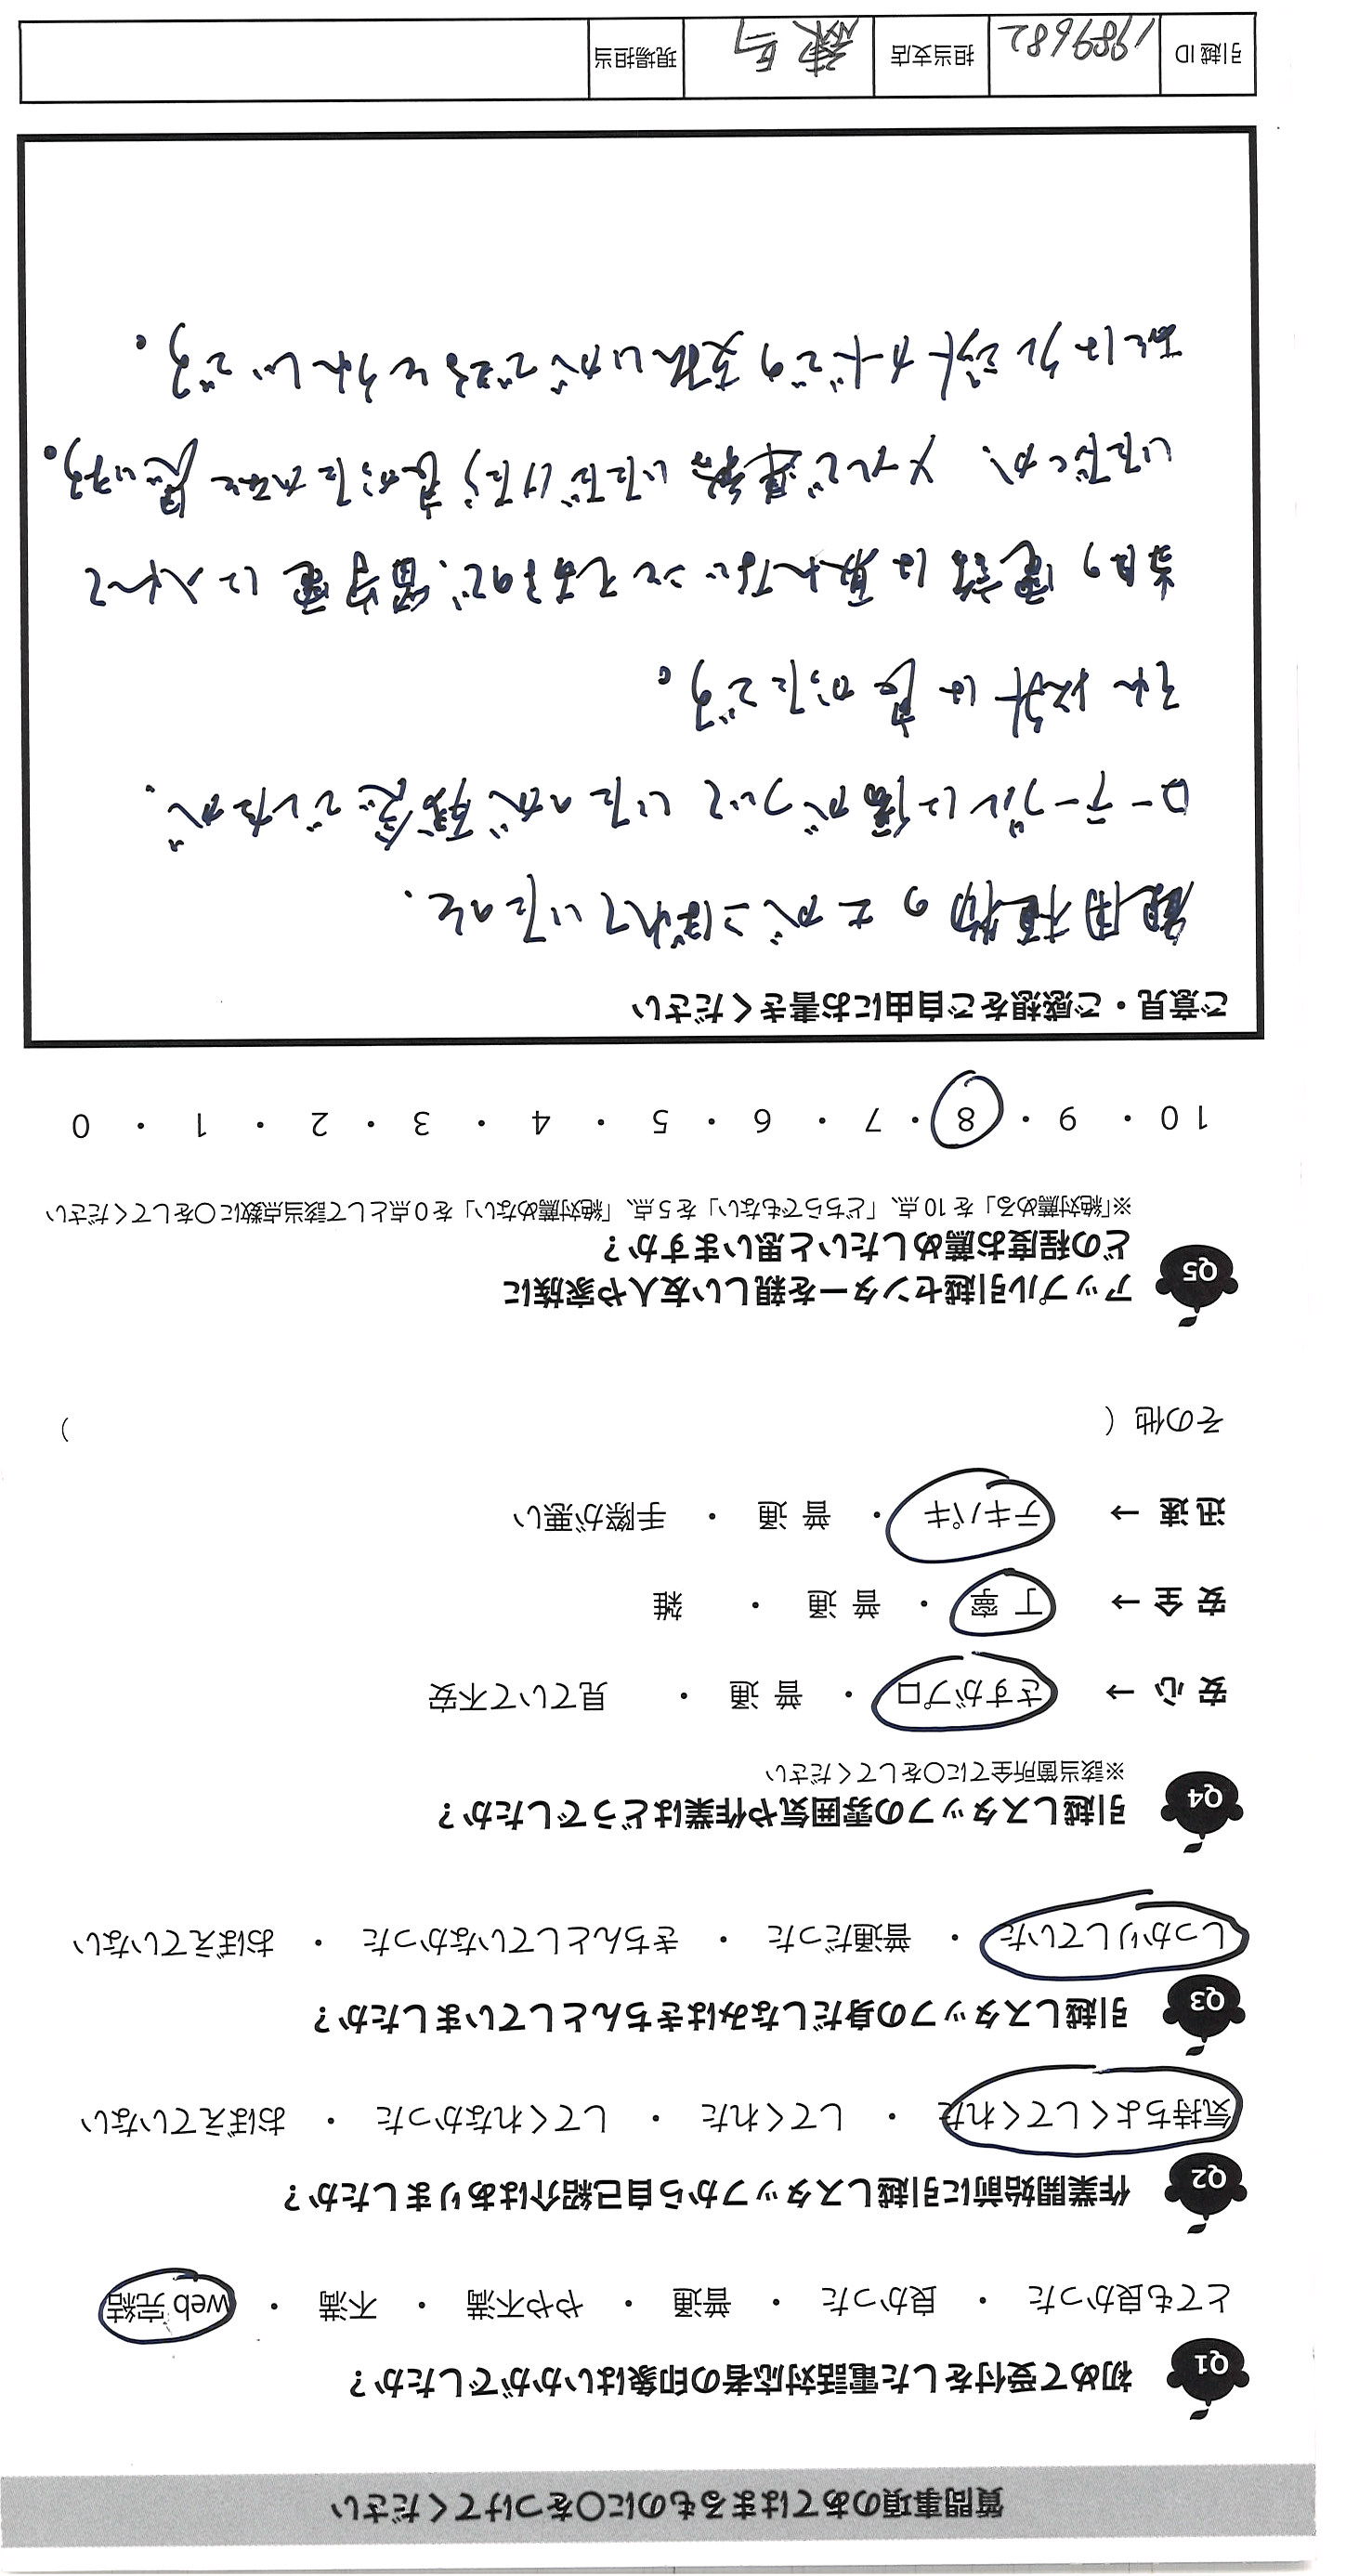 質問事項のあてはまるものに〇をつけてください
Q1 初めて受付をした電話対応者の印象はいかがでしたか？
とても良かった ・ 良かった ・ 普通 ・ やや不満 ・ 不満 ・ web 完結
Q2 作業開始前に引越しスタッフから自己紹介はありましたか？
気持ちよくしてくれた ・ してくれた ・ してくれなかった ・ おぼえていない
Q3 引越しスタッフの身だしなみはきちんとしていましたか？
しっかりしていた ・ 普通だった ・ きちんとしていなかった ・ おぼえていない
Q4 引越しスタッフの雰囲気や作業はどうでしたか？
※該当箇所全てに〇をしてください
安 心 → さすがプロ ・ 普 通 ・ 見ていて不安
安 全 → 丁 寧 ・ 普 通 ・ 雑
迅 速 → テキパキ ・ 普 通 ・ 手際が悪い
その他（ ）
Q5 アップル引越センターを親しい友人や家族に
どの程度お薦めしたいと思いますか？
※「絶対薦める」を 10 点、「どちらでもない」を 5 点、「絶対薦めない」を 0 点として該当点数に〇をしてください
10 ・ 9 ・ 8 ・ 7 ・ 6 ・ 5 ・ 4 ・ 3 ・ 2 ・ 1 ・ 0
ご意見・ご感想をご自由にお書きください
観用植物の土がこぼれていたのと、
ローテーブルに傷がついていたのが残念でしたが、
それ以外は良かったです。
当日の電話は取れないこともあるので、留守電に入れて
いただくか、メールで連絡いただけたら良かったかなと思います。
あとはクレジットカードでの支払いができるとうれしいです。
引越 ID 1989682 担当支店 練馬 現場担当